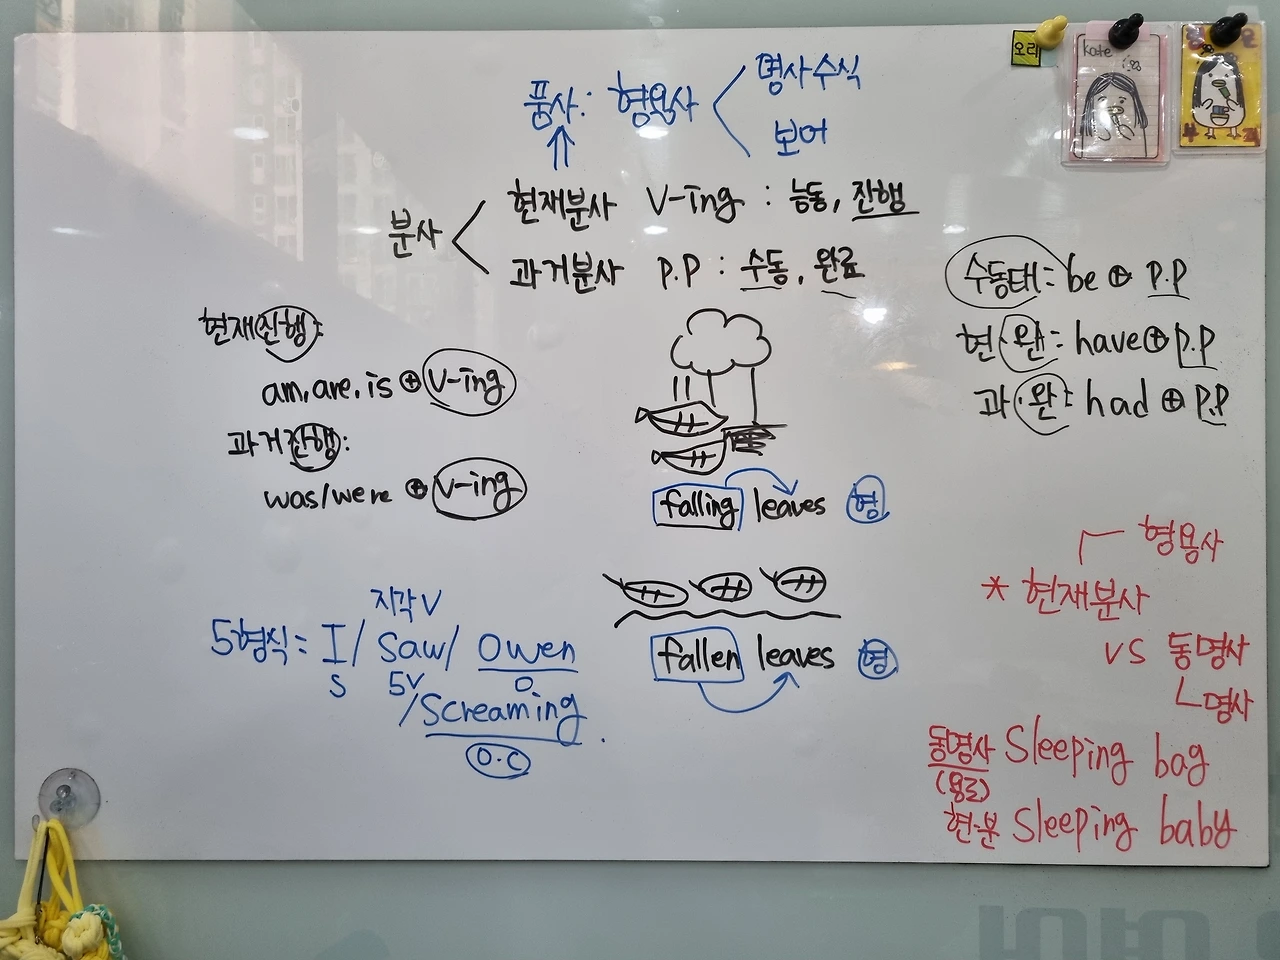 오리
kate
품사: 형용사 < 명사수식
보어
분사 < 현재분사 V-ing : 능동, 진행
과거분사 P.P : 수동, 완료
현재진행:
am, are, is ⊕ V-ing
과거진행:
was/were ⊕ V-ing
수동태: be ⊕ P.P
현·완: have ⊕ P.P
과·완: had ⊕ P.P
falling leaves 형
fallen leaves 형
지각V
5형식: I / Saw / Owen
S 5V O
/ Screaming.
O.C
형용사
* 현재분사
vs 동명사
ㄴ명사
동명사 Sleeping bag
(용도)
현·분 Sleeping baby